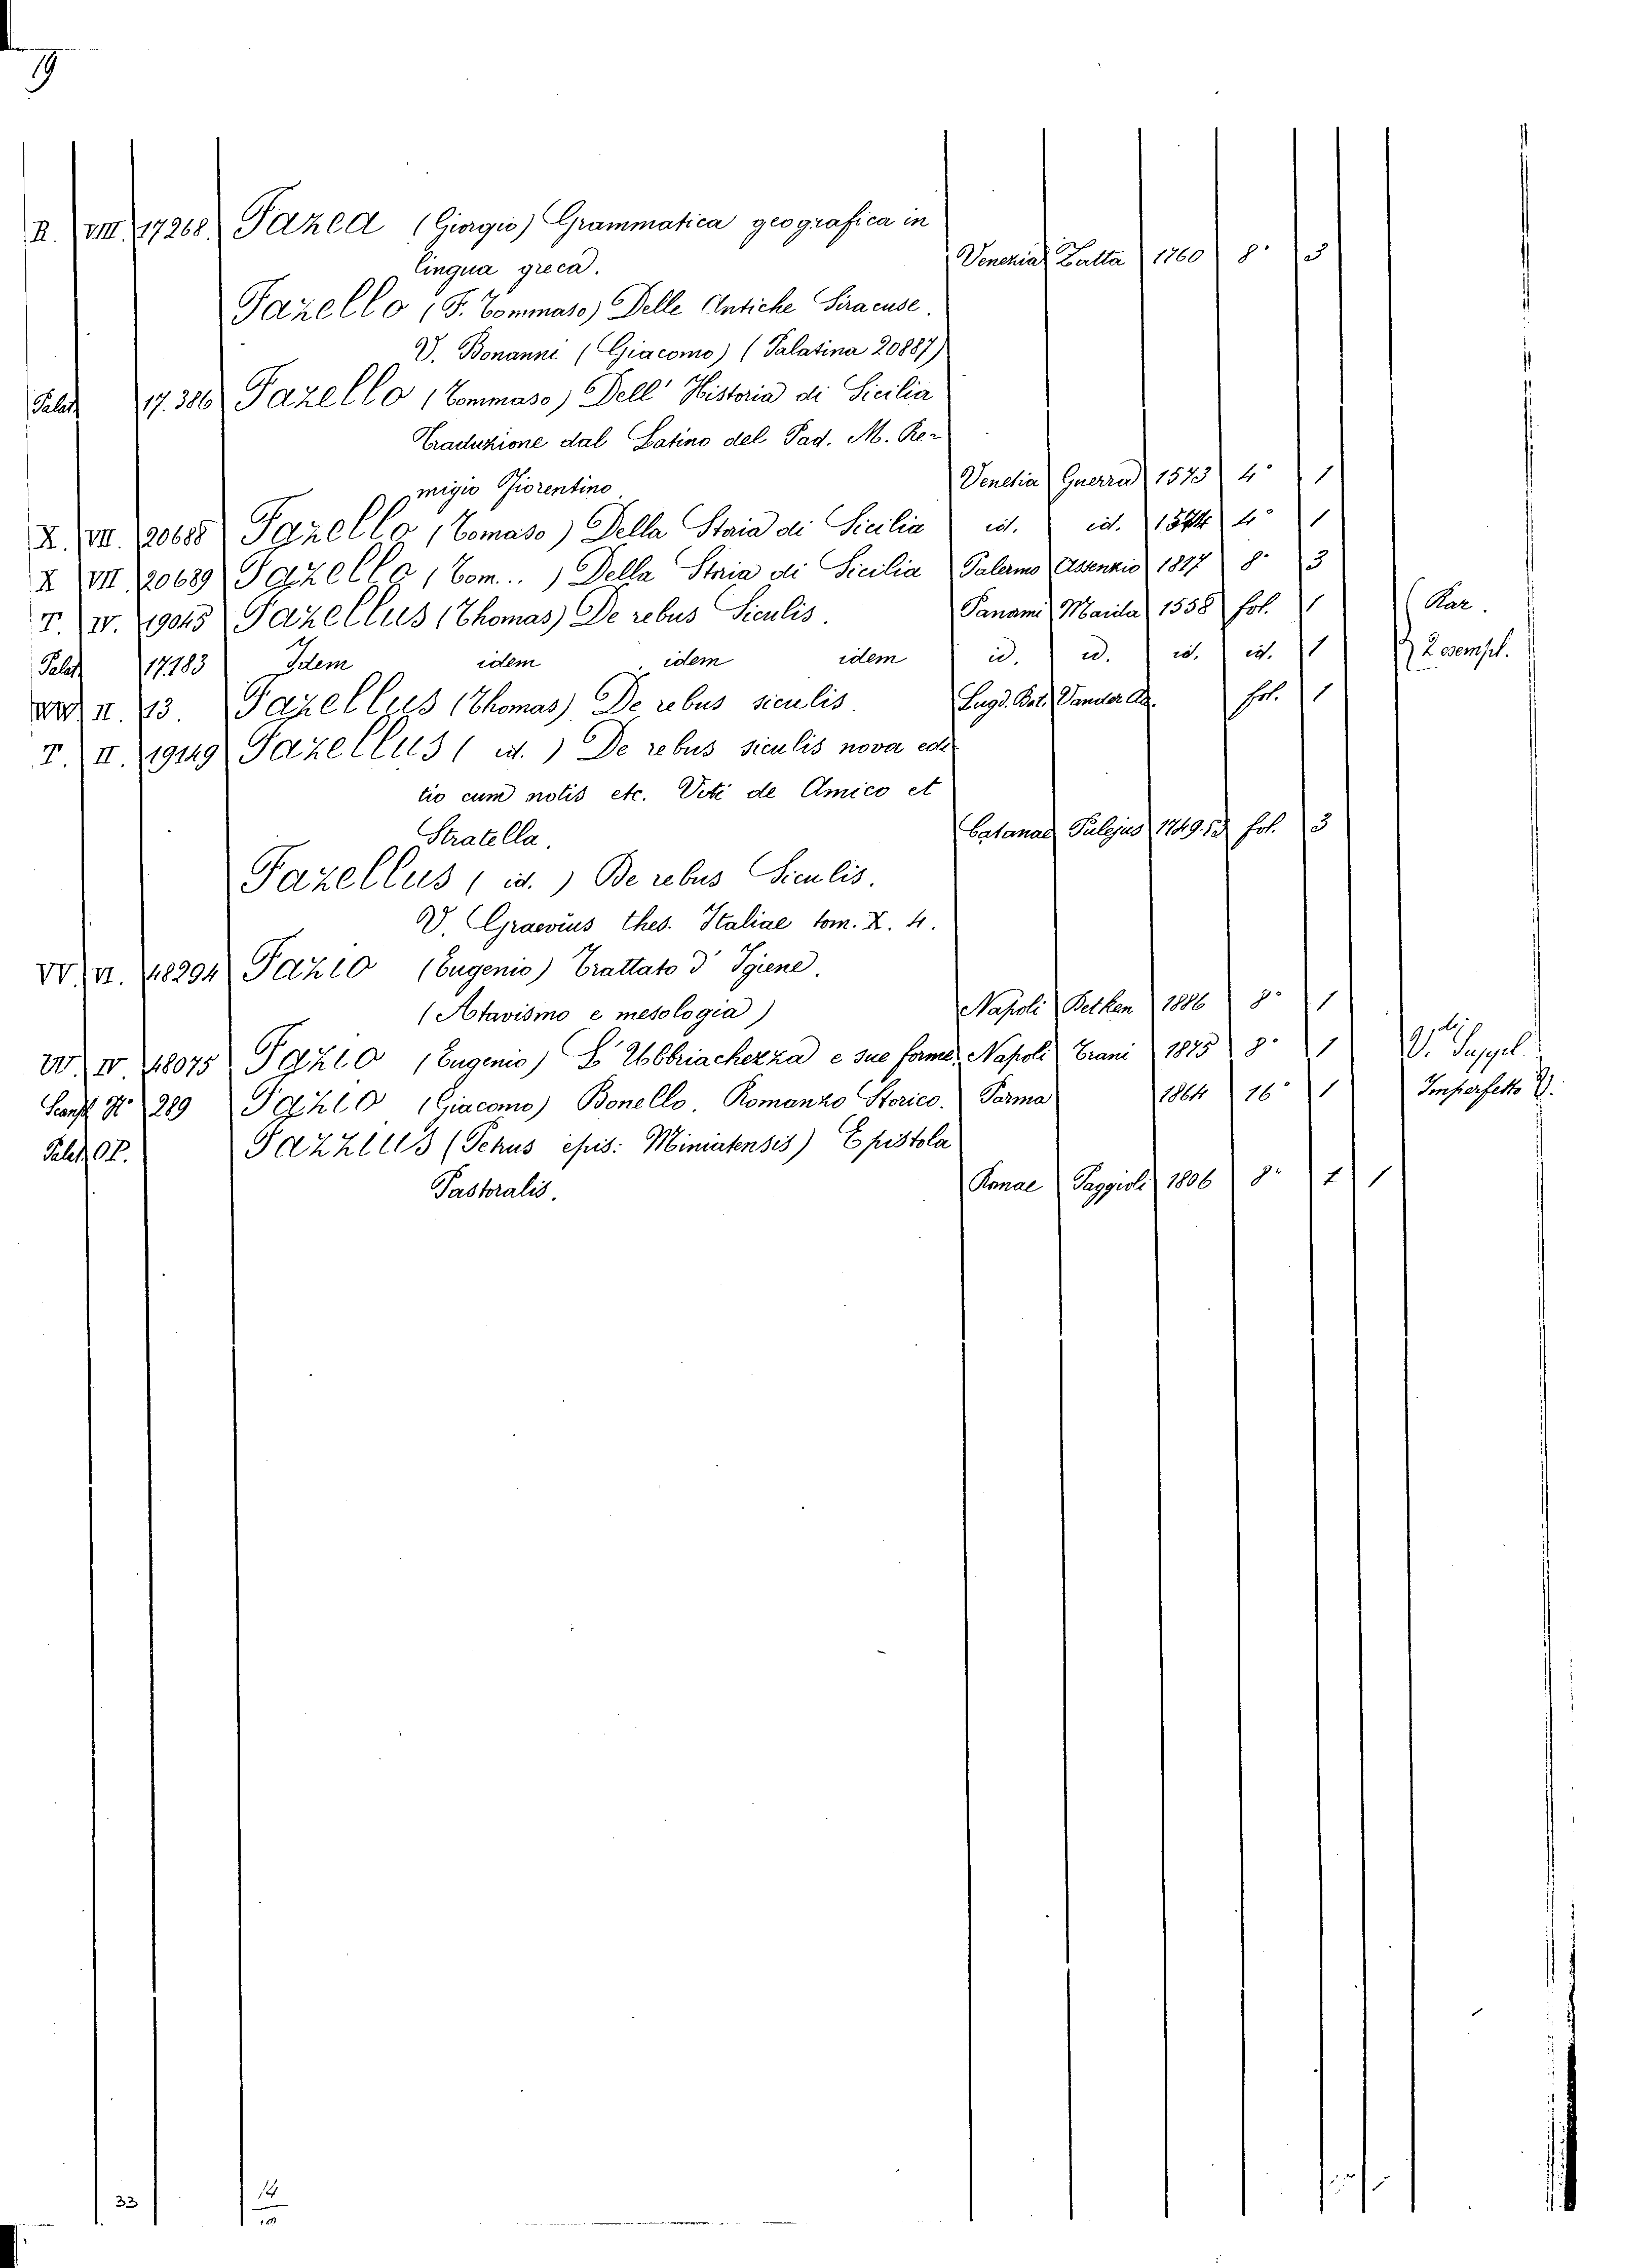 19
R. VIII. 17268. Fazea (Giorgio) Grammatica geografica in
lingua greca. Venezia Zatta 1760 8° 3
Fazello (F. Tommaso) Delle Antiche Siracuse.
V. Bonanni (Giacomo) (Palatina 20887)
Palat 17.386 Fazello (Tommaso) Dell' Historia di Sicilia
Traduzione dal Latino del Pad. M. Re-
migio Fiorentino Venetia Guerra 1573 4° 1
X. VII. 20688 Fazello (Tomaso) Della Storia di Sicilia id. id. 1574 4° 1
X VII 20689 Fazello (Tom...) Della Storia di Sicilia Palermo Assenzio 1817 8° 3
T. IV. 19045 Fazellus (Thomas) De rebus Siculis. Panami Maida 1558 fol. 1 Rar.
Palat 17.183 Idem idem idem idem id. id. id. id. 1 2 esempl.
II. 13. Fazellus (Thomas) De rebus siculis. Lugd. Bat. Vander Aa. fol. 1
T. II. 19149 Fazellus (id.) De rebus siculis nova edi-
tio cum notis etc. Viti de Amico et
Stratella. Catanae Pulejus 1749.53 fol. 3
Fazellus (id.) De rebus Siculis.
V. Graevius thes. Italiae tom. X. 4.
W. VI. 48294 Fazio (Eugenio) Trattato d' Igiene.
(Atavismo e mesologia) Napoli Detken 1886 8° 1
W. IV 48075 Fazio (Eugenio) L' Ubbriachezza e sue forme. Napoli Trani 1875 8° 1 V. Suppl.
Scansf. N° 289 Fazio (Giacomo) Bonello. Romanzo Storico. Parma 1864 16° 1 Imperfetto V.
Palat OP. Fazzius (Petrus epis: Miniatensis) Epistola
Pastoralis. Romae Poggioli 1806 8° 1 1
33
14